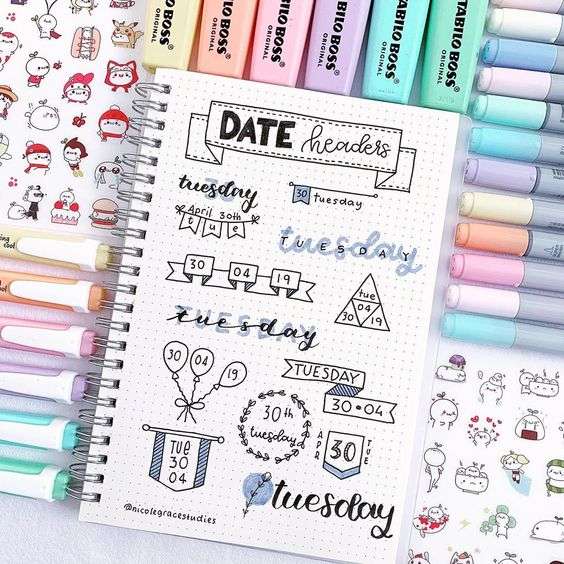 STABILO BOSS ORIGINAL
STABILO BOSS ORIGINAL
STABILO BOSS ORIGINAL
STABILO BOSS ORIGINAL
STABILO BOSS ORIGINAL
STABILO BOSS ORIGINAL
DATE headers
30
tuesday
30 tuesday
April 30th
tue
tuesday
TUESDAY
30 04 19
tue
04
30 19
tuesday
tuesday
30 04 19
TUESDAY
30•04
30th
tuesday
APR 30 TUE
TUE
30
04
tuesday
@nicolegracestudies